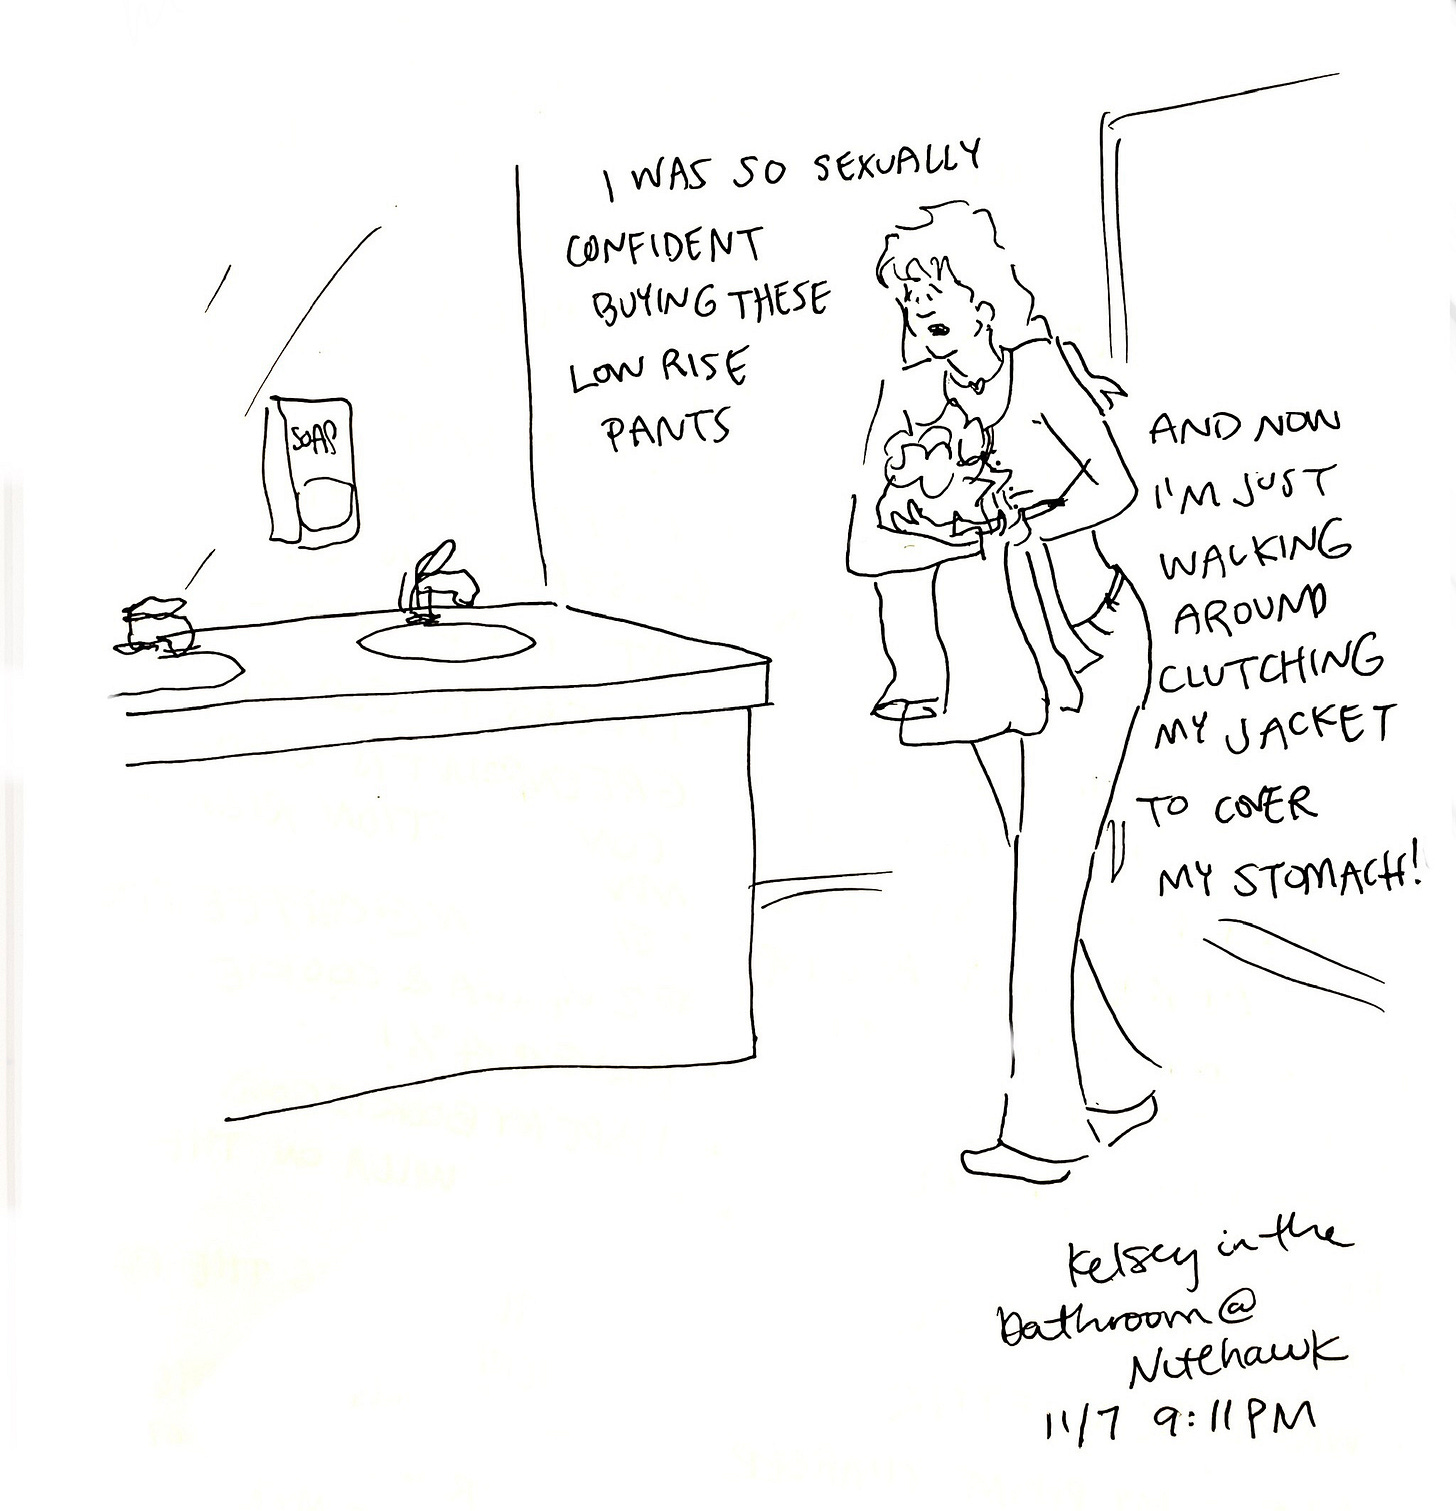 I WAS SO SEXUALLY
CONFIDENT
BUYING THESE
LOW RISE
PANTS
SOAP
AND NOW
I'M JUST
WALKING
AROUND
CLUTCHING
MY JACKET
TO COVER
MY STOMACH!
Kelsey in the
Bathroom @
Nitehawk
11/7 9:11PM